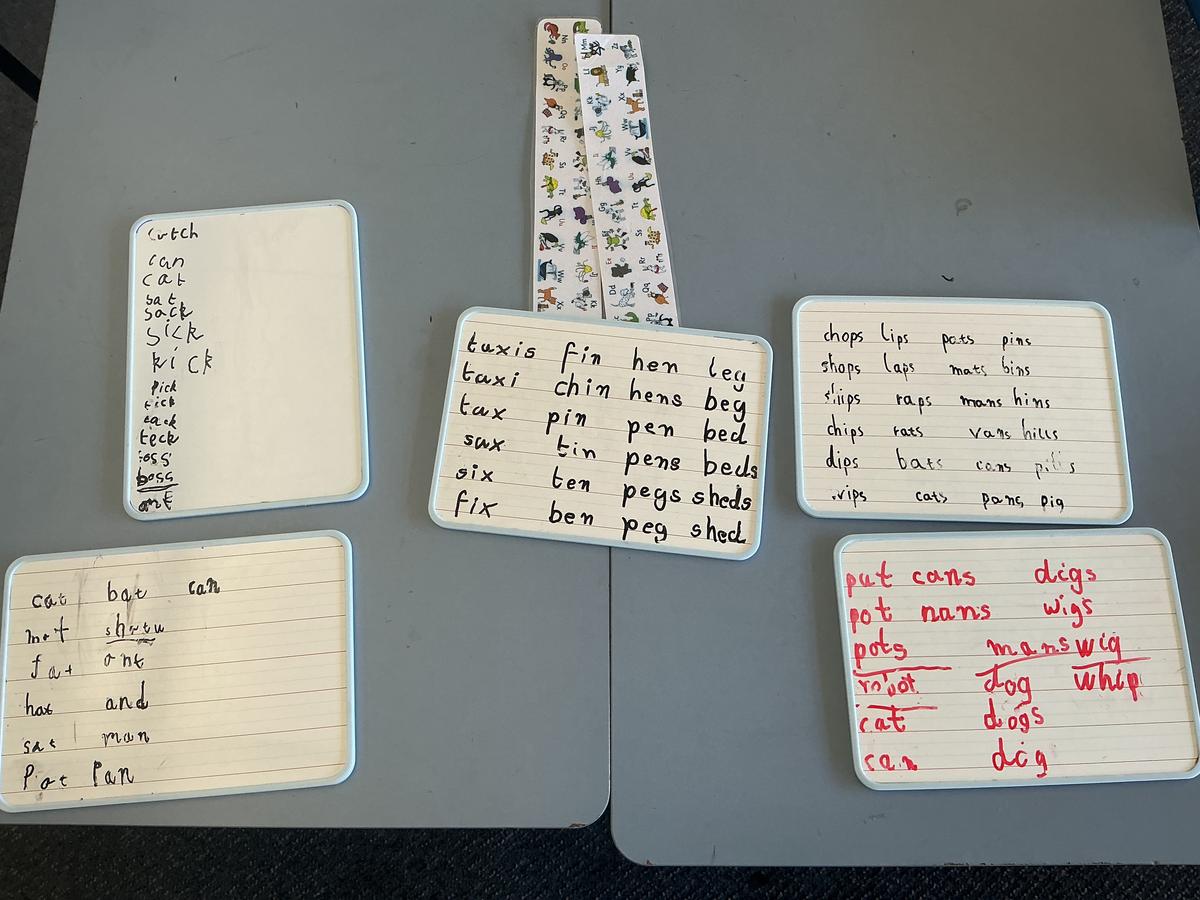 can
cat
sat
sack
sick
kick
pick
tick
teck
boss
ant
taxis fin hen leg
taxi chin hens beg
tax pin pen bed
sax tin pens beds
six ten pegs sheds
fix ben peg shed
chops lips pots pins
shops laps mats bins
raps mans hins
chips rats vans hills
dips bats cans
cats pans pig
cat bat can
fat ant
hat and
sat man
Pat Pan
put cans digs
pot nans wigs
pots mans wig
robot dog whip
cat dogs
can dig